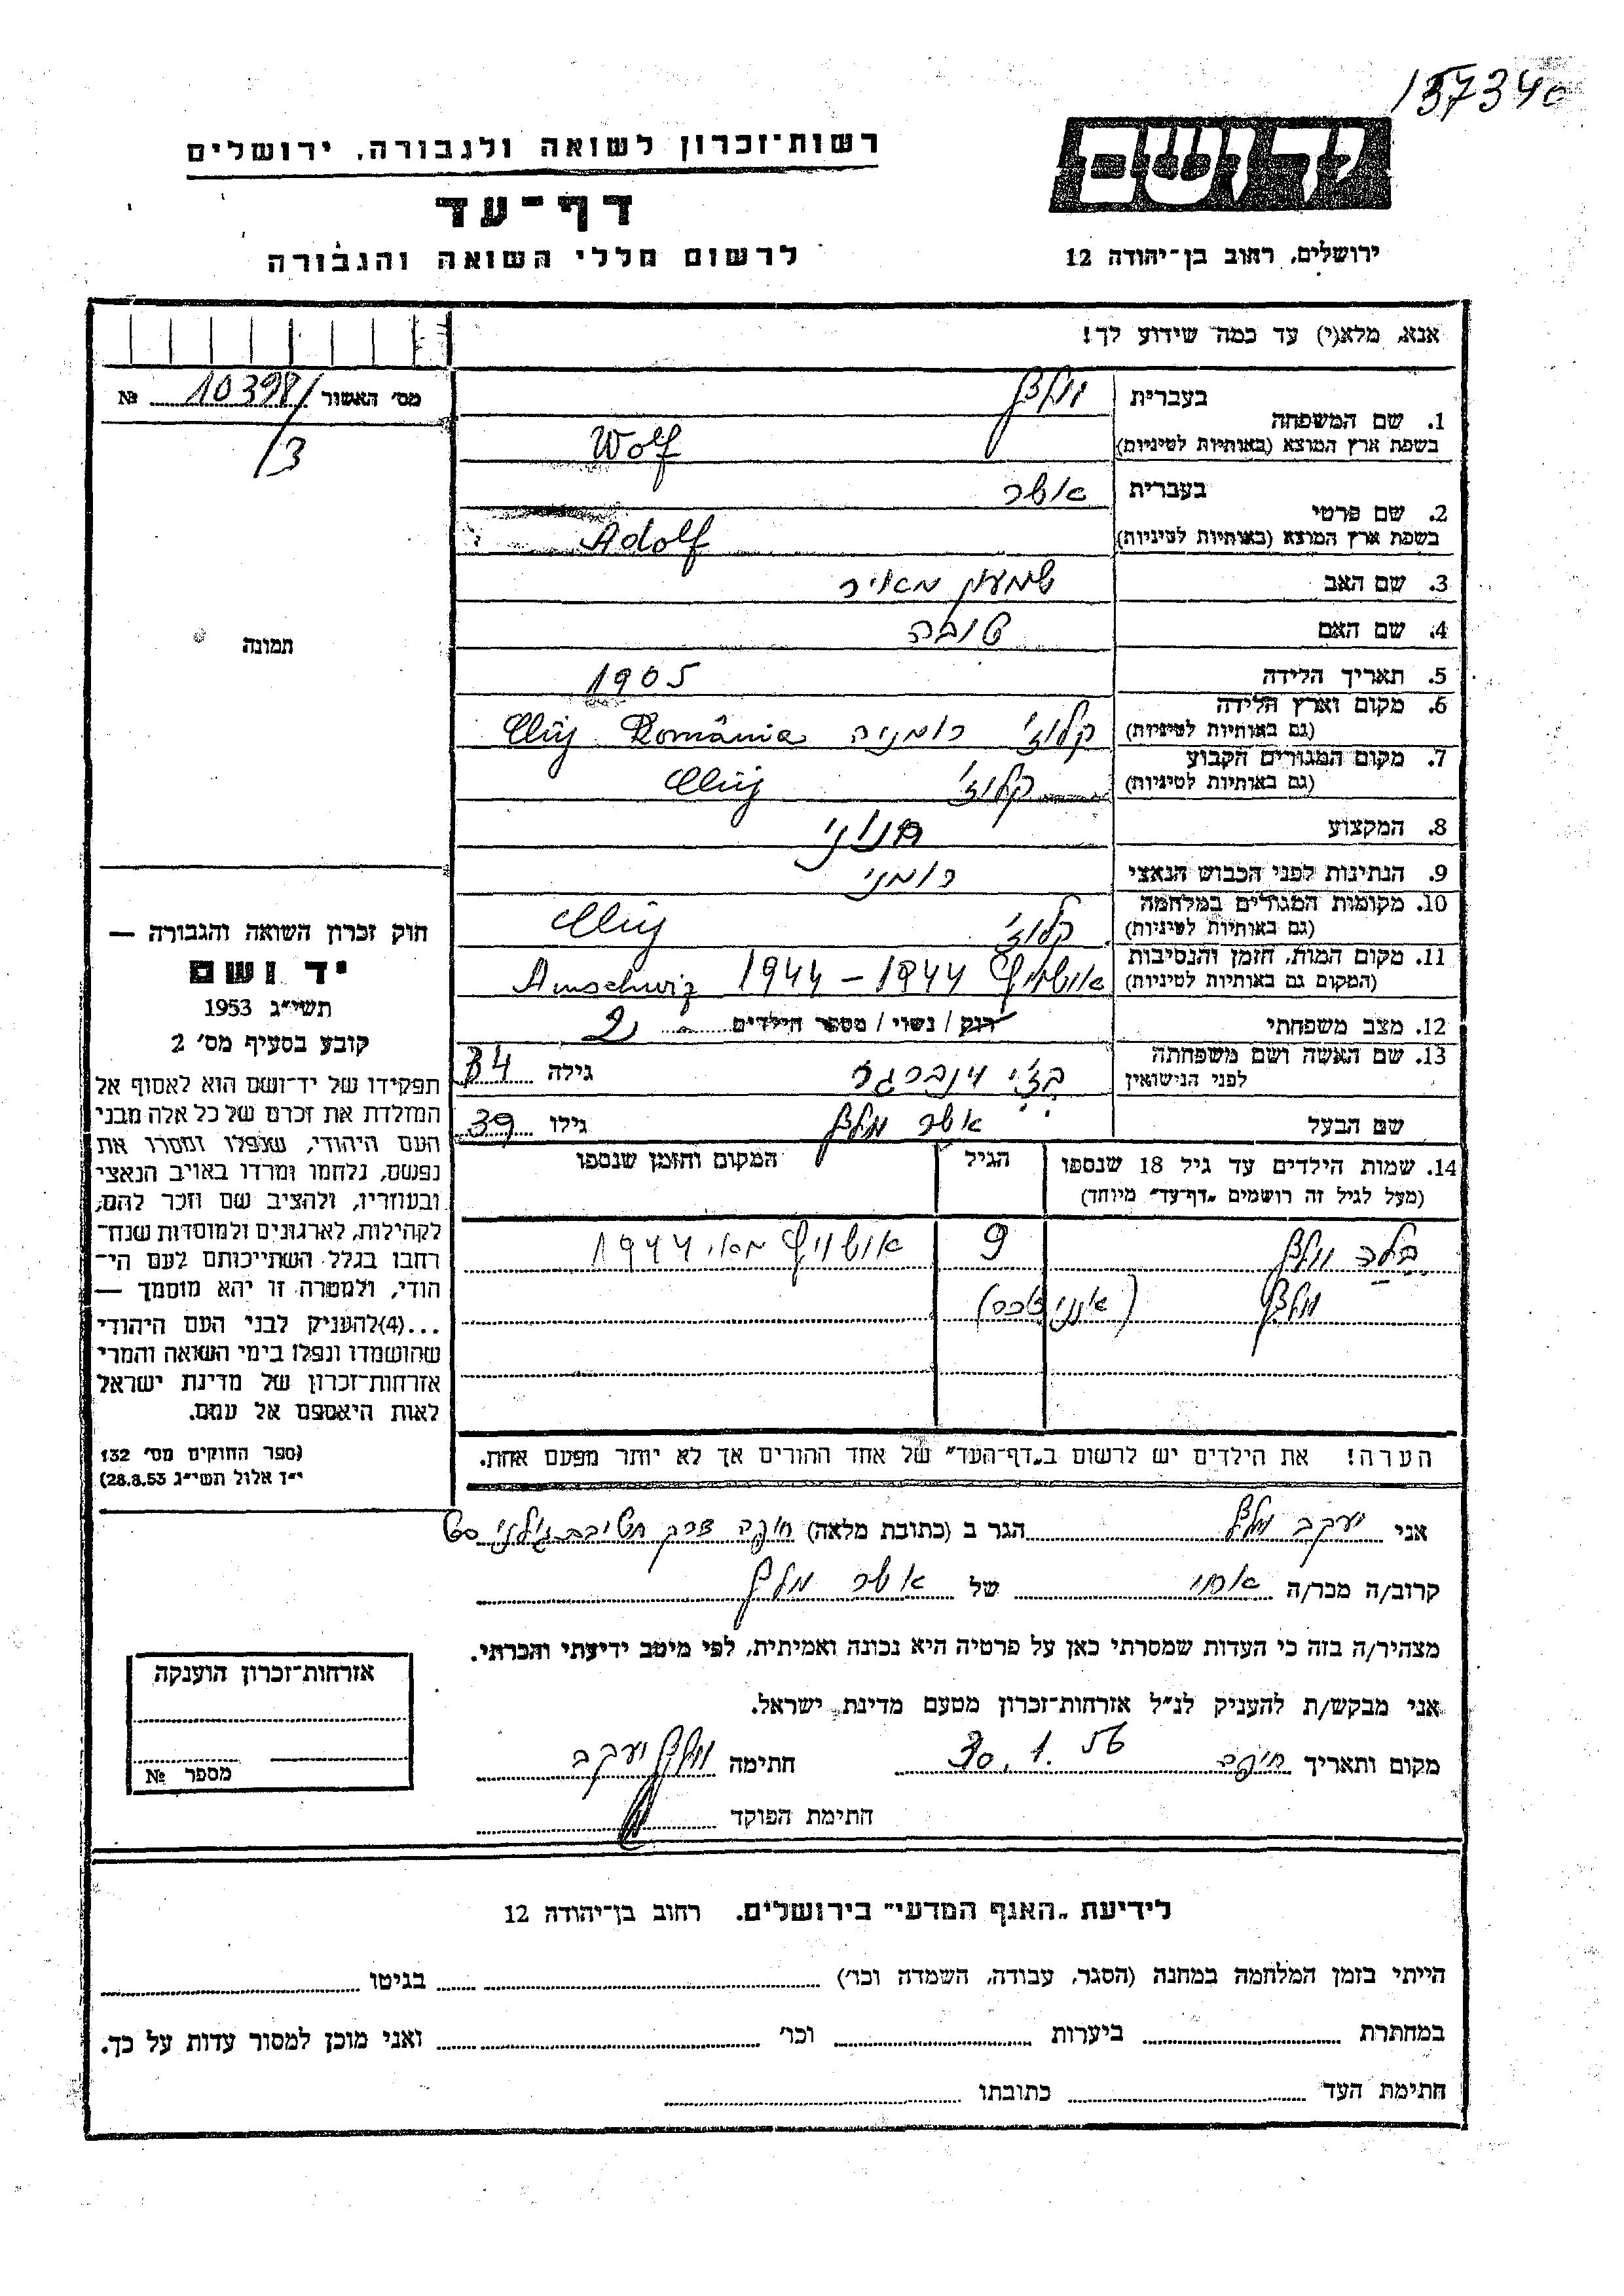 157340
יד ושם
רשות־זכרון לשואה ולגבורה, ירושלים
דף־עד
לרשום חללי השואה והגבורה
ירושלים, רחוב בן־יהודה 12
אנא, מלא(י) עד כמה שידוע לך!
מס׳ האשור 10398/3 №
1. שם המשפחה
בעברית וולף
בשפת ארץ המוצא (באותיות לטיניות) Wolf
2. שם פרטי
בעברית אשר
בשפת ארץ המוצא (באותיות לטיניות) Adolf
3. שם האב שמעון מאיר
4. שם האם טובה
5. תאריך הלידה 1905
6. מקום וארץ הלידה (גם באותיות לטיניות) קלוז׳ רומניה România Cluj
7. מקום המגורים הקבוע (גם באותיות לטיניות) קלוז׳ Cluj
8. המקצוע
9. הנתינות לפני הכבוש הנאצי רומני
10. מקומות המגורים במלחמה (גם באותיות לטיניות) קלוז׳ Cluj
11. מקום המות, הזמן והנסיבות (המקום גם באותיות לטיניות) אושויץ 1944 – 1944 Auschwiz
12. מצב משפחתי רוק / נשוי / מספר הילדים 2
13. שם האשה ושם משפחתה לפני הנישואין וינברגר גילה 34
שם הבעל אשר וולף גילו 39
14. שמות הילדים עד גיל 18 שנספו (מעל לגיל זה רושמים „דף־עד״ מיוחד) הגיל המקום והזמן שנספו
וולף 9 אושויץ מאי 1944
וולף
הערה! את הילדים יש לרשום ב„דף־העד״ של אחד ההורים אך לא יותר מפעם אחת.
תמונה
חוק זכרון השואה והגבורה —
יד ושם
תשי״ג 1953
קובע בסעיף מס׳ 2
תפקידו של יד־ושם הוא לאסוף אל
המולדת את זכרם של כל אלה מבני
העם היהודי, שנפלו ומסרו את
נפשם, נלחמו ומרדו באויב הנאצי
ובעוזריו, ולהציב שם וזכר להם,
לקהילות, לארגונים ולמוסדות שנח־
רבו בגלל השתייכותם לעם הי־
הודי, ולמטרה זו יהא מוסמך —
...(4)להעניק לבני העם היהודי
שהושמדו ונפלו בימי השואה והמרי
אזרחות־זכרון של מדינת ישראל
לאות היאספם אל עמם.
(ספר החוקים מס׳ 132
י״ז אלול תשי״ג 28.8.53)
אני יעקב וולף הגר ב (כתובת מלאה) חיפה
קרוב/ה מכר/ה אחי של אשר וולף
מצהיר/ה בזה כי העדות שמסרתי כאן על פרטיה היא נכונה ואמיתית, לפי מיטב ידיעתי והכרתי.
אני מבקש/ת להעניק לנ״ל אזרחות־זכרון מטעם מדינת ישראל.
מקום ותאריך חיפה 30.1.56 חתימה וולף יעקב
חתימת הפוקד
אזרחות־זכרון הוענקה
מספר №
לידיעת „האגף המדעי״ בירושלים, רחוב בן־יהודה 12
הייתי בזמן המלחמה במחנה (הסגר, עבודה, השמדה וכו׳) בגיטו
במחתרת ביערות וכו׳ ואני מוכן למסור עדות על כך.
חתימת העד כתובתו